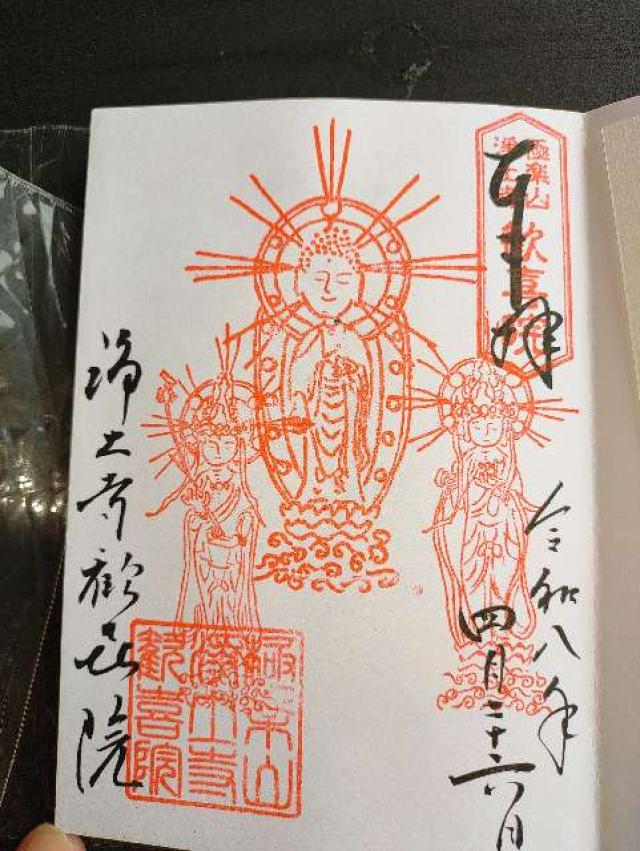 奉拝
極楽山
浄土寺
歓喜院
令和八年
四月二十六日
浄土寺歓喜院
極楽山
浄土寺
歓喜院